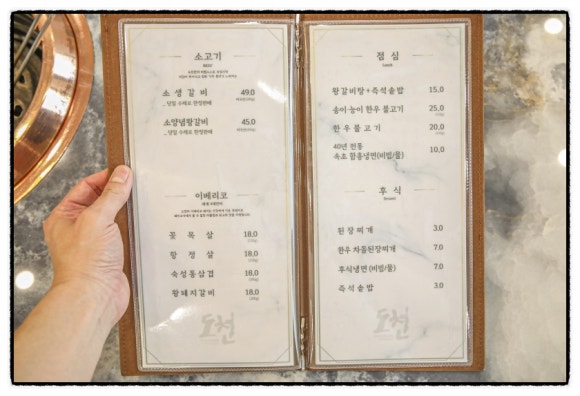 소고기
BEEF
소 생 갈 비 49,0
, 당일 수제로 한정판매
소양념왕갈비 45,0
, 당일 수제로 한정판매
이베리코
꽃 목 살 18,0
항 정 살 18,0
숙성통삼겹 18,0
왕돼지갈비 18,0
도천
점 심
Lunch
왕갈비탕 + 즉석솥밥 15,0
송이·능이 한우 불고기 25,0
한 우 불 고 기 20,0
40년 전통
속초 함흥냉면(비빔/물) 10,0
후 식
Dessert
된 장 찌 개 3,0
한우 차돌된장찌개 7,0
후식냉면 (비빔/물) 7,0
즉 석 솥 밥 3,0
도천